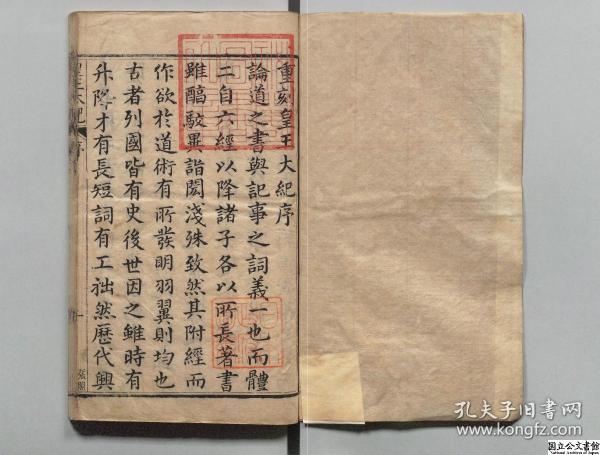 重刻皇王大紀序
論道之書與記事之詞義一也而體
二自六經以降諸子各以所長著書
雖醕駁異詣閎淺殊致然其附經而
作欲於道術有所發明羽翼則均也
古者列國皆有史後世因之雖時有
升降才有長短詞有工拙然歷代興
皇王大紀 序
一
孔夫子旧书网
www.kongfz.com
国立公文書館
National Archives of Japan